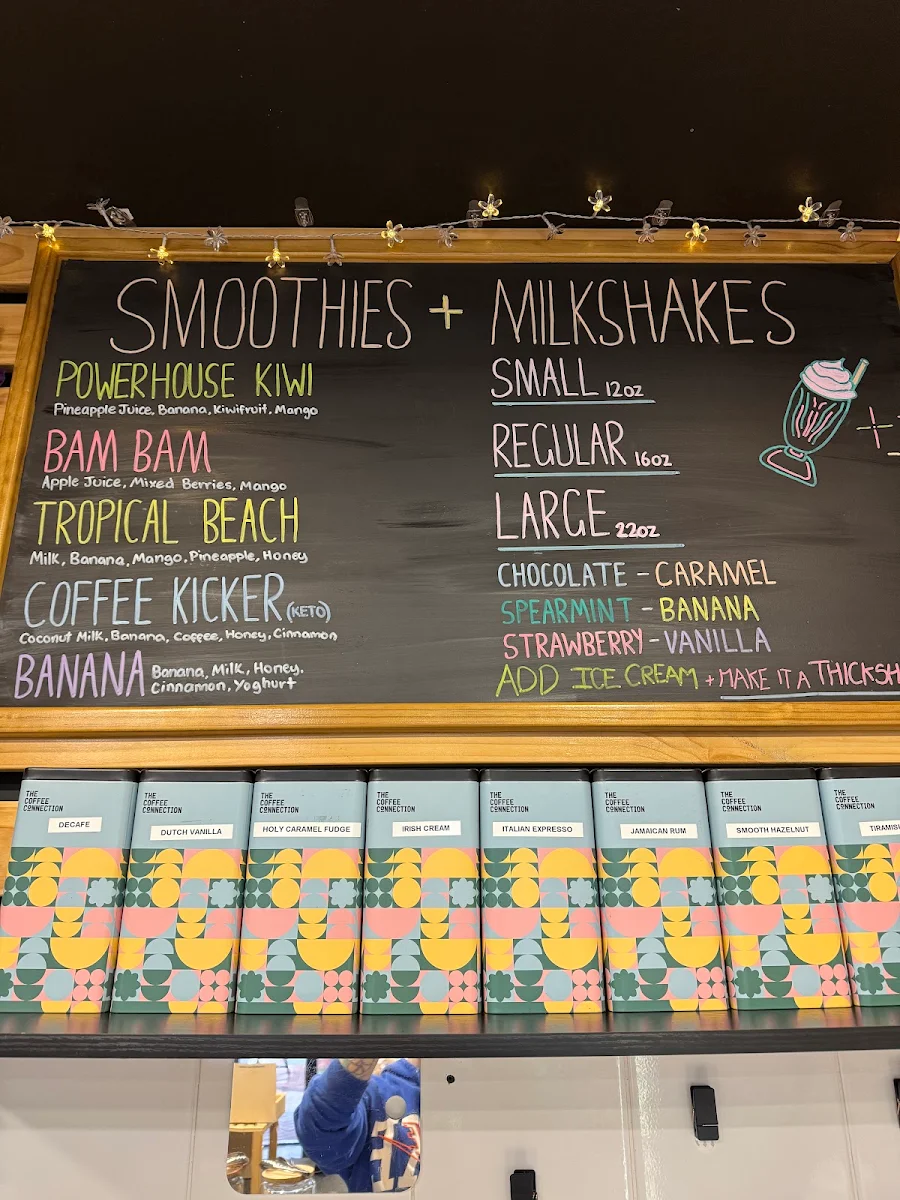 SMOOTHIES + MILKSHAKES
POWERHOUSE KIWI
Pineapple Juice, Banana, Kiwifruit, Mango
BAM BAM
Apple Juice, Mixed Berries, Mango
TROPICAL BEACH
Milk, Banana, Mango, Pineapple, Honey
COFFEE KICKER (KETO)
Coconut Milk, Banana, Coffee, Honey, Cinnamon
BANANA Banana, Milk, Honey.
Cinnamon, Yoghurt
SMALL 12oz
REGULAR 16oz
LARGE 22oz
CHOCOLATE - CARAMEL
SPEARMINT - BANANA
STRAWBERRY - VANILLA
ADD ICE CREAM + MAKE IT A THICKSH
THE
COFFEE
CONNECTION
DECAFE
THE
COFFEE
CONNECTION
DUTCH VANILLA
THE
COFFEE
CONNECTION
HOLY CARAMEL FUDGE
THE
COFFEE
CONNECTION
IRISH CREAM
THE
COFFEE
CONNECTION
ITALIAN EXPRESSO
THE
COFFEE
CONNECTION
JAMAICAN RUM
THE
COFFEE
CONNECTION
SMOOTH HAZELNUT
THE
COFFEE
CONNECTION
TIRAMIS